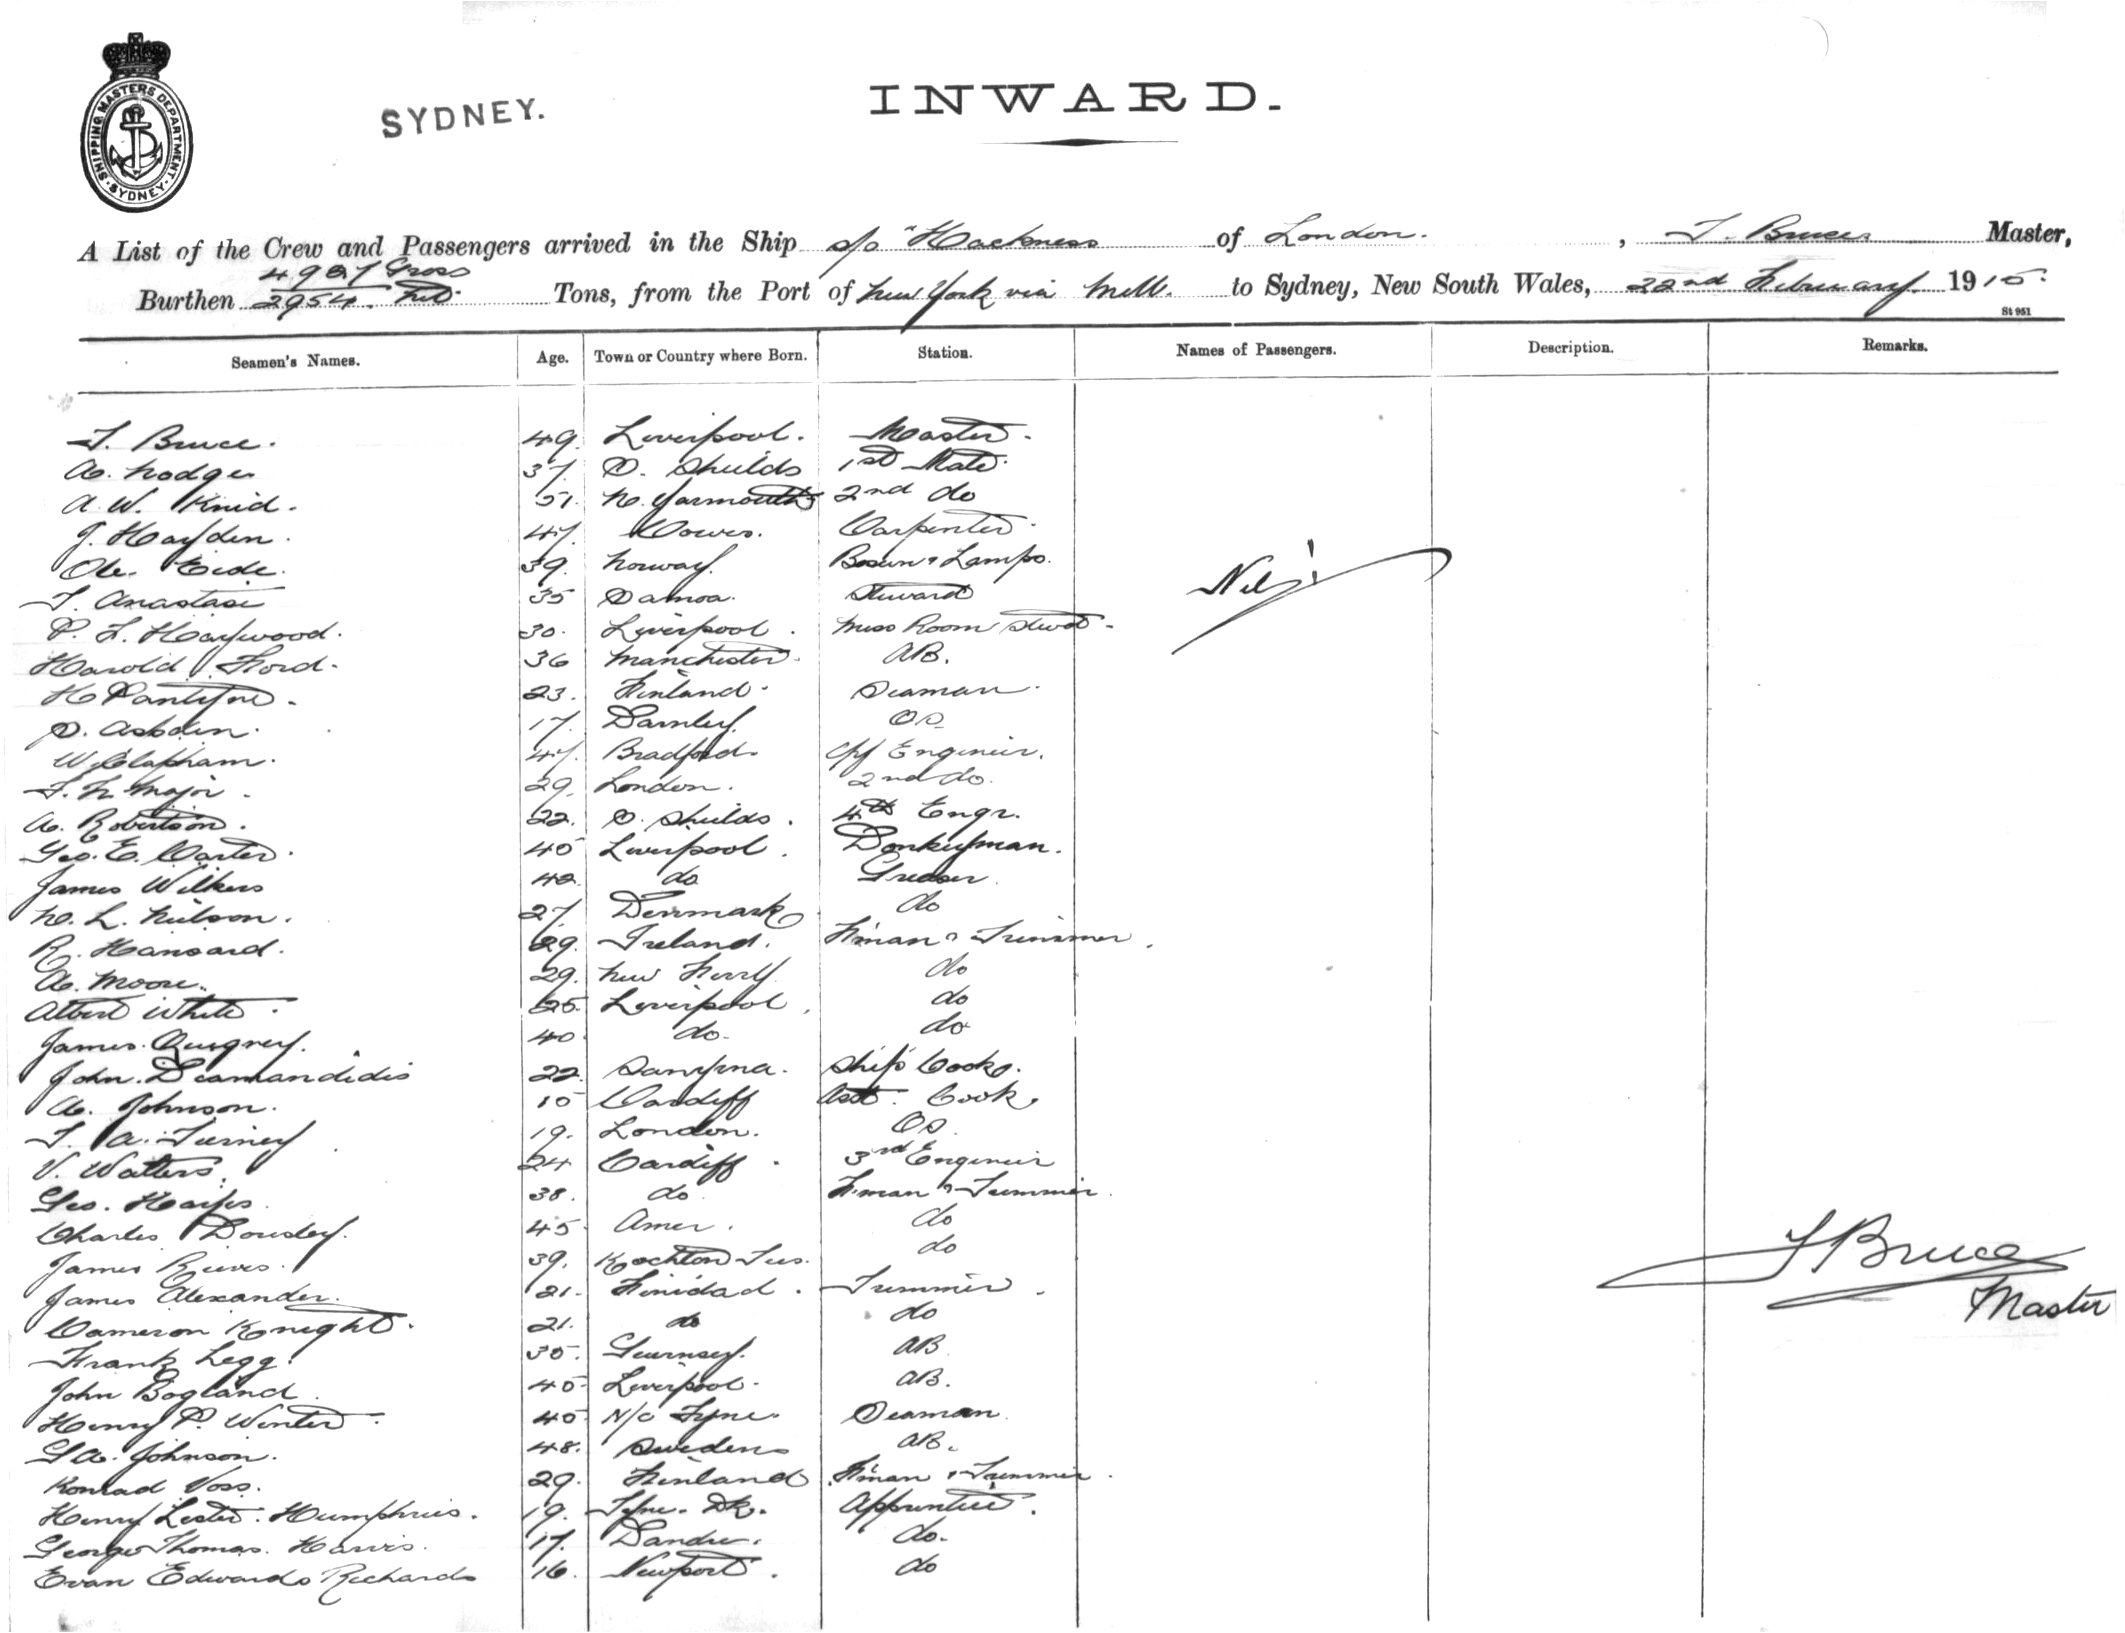 SHIPPING MASTERS DEPARTMENT. SYDNEY.
SYDNEY.
INWARD.
A List of the Crew and Passengers arrived in the Ship s/s "Hackness of London. , T. Bruce Master,
Burthen 2954 Net Gross Tons, from the Port of New York via Melb. to Sydney, New South Wales, 22nd February 1915.
St 951
Seamen's Names. Age. Town or Country where Born. Station. Names of Passengers. Description. Remarks.
T. Bruce. 49. Liverpool. Master.
A. Hodge 37. S. Shields 1st Mate.
A. W. Kinid. 51. N. Yarmouth 2nd do
J. Hayden. 47. Cowes. Carpenter.
Ole. Eide. 39. Norway. Bosun & Lamps.
Nil
T. Anastasi 35 Samoa. Steward
P. L. Haywood. 30. Liverpool. Mess Room Stwd.
Harold Ford. 36 Manchester. AB.
H 23. Finland. Seaman.
S. Asbden. 17. OS
W. Clapham. 47. Bradford. Chf Engineer.
T. H. Major. 29. London. 2nd do.
A. Robertson. 22. S. Shields. 4th Engr.
Geo. E. Carter. 45 Liverpool. Donkeyman.
James Wilkers 42. do Greaser.
N. L. Neilson. 27. Denmark do
R. Hansard. 29. Ireland. F'man & Trimmer.
A. Moore. 29. New Ferry do
Albert White. 25. Liverpool. do
James. 40 do. do
John. Diamandidis 22. Ship's Cook.
A. Johnson. 15 Cardiff Asst. Cook.
T. A. Tierney 19. London. OS.
V. Watters. 24 Cardiff. 3rd Engineer
Geo. Hayes. 38. do F'man & Trimmer.
Charles Dousley. 45. Amer. do
James Reeves. 39. do
James Alexander. 21. Trinidad. Trimmer.
Cameron Knight. 21. do do
Frank Legg. 35. Guernsey. AB
John Bogland. 45 Liverpool. AB.
Henry P. Winter. 45 N/c Tyne. Seaman.
G A. Johnson. 48. Sweden AB.
Konrad Voss. 29. Finland F'man & Trimmer.
Henry Lester. Humphries. 19. Tyne. Dk. Apprentice.
George Thomas. Harris. 17. do.
Evan Edwards Richards 16. Newport. do
T Bruce
Master